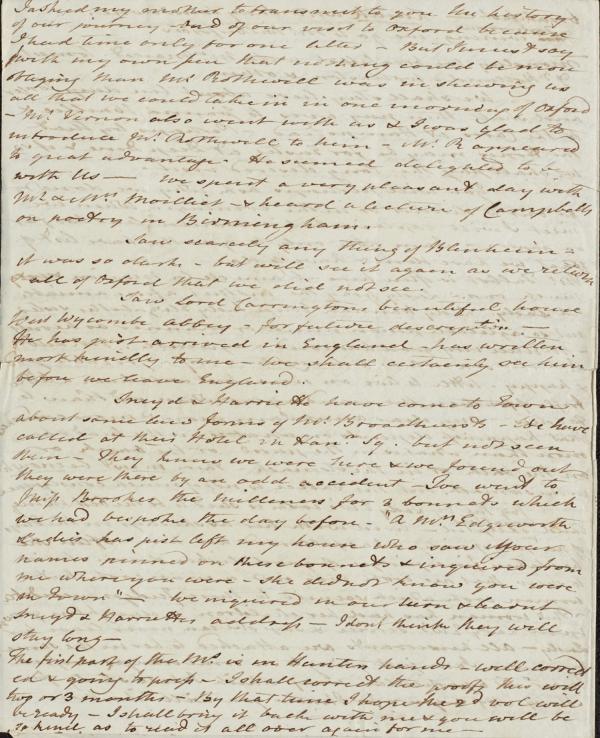 I asked my mother to transmit to you the history
of our journey and of our visit to Oxford because
I had time only for one letter – But I must say
with my own pen that nothing could be more
obliging than Mr Rothwell was in shewing us
all that we could take in in one morning of Oxford
– Mr Vernon also went with us & I was glad to
introduce Mr Rothwell to him – Mr R appeared
to great advantage – He seemed delighted to be
with us — We spent a very pleasant day with
Mr & Mrs Moilliet & heard a lecture of Campbells
on poetry in Birmingham.
Saw scarcely any thing of Blenheim –
it was so dark – but will see it again as we return
& all of Oxford that we did not see.
Saw Lord Carringtons beautiful house
near Wycombe Abbey – for future description —
He has just arrived in England – has written
most kindly to me – we shall certainly see him
before we leave England.
Sneyd & Harriette have come to Town
about some law forms of Mr Broadhursts – We have
called at their Hotel in Hanr Sq. but not seen
them – They knew we were here & we found out
they were there by an odd accident – I've went to
Miss Brookes the milleners for 3 bonnets which
we had bespoke the day before – "A Mrs Edgeworth
Ladies has just left my house who saw your
names pinned on these bonnets & inquired from
me where you were – She did not know you were
in Town" — We inquired in our turn & learnt
Sneyd & Harriettes address – I don't think they will
stay long –
The first part of the Ms. is in Hunters hands – well correct
ed & going to press – I shall correct the proofs this will
two or 3 months – By that time I hope the 2d vol will
be ready – I shall bring it back with me & you will be
so kind as to read it all over again for me —